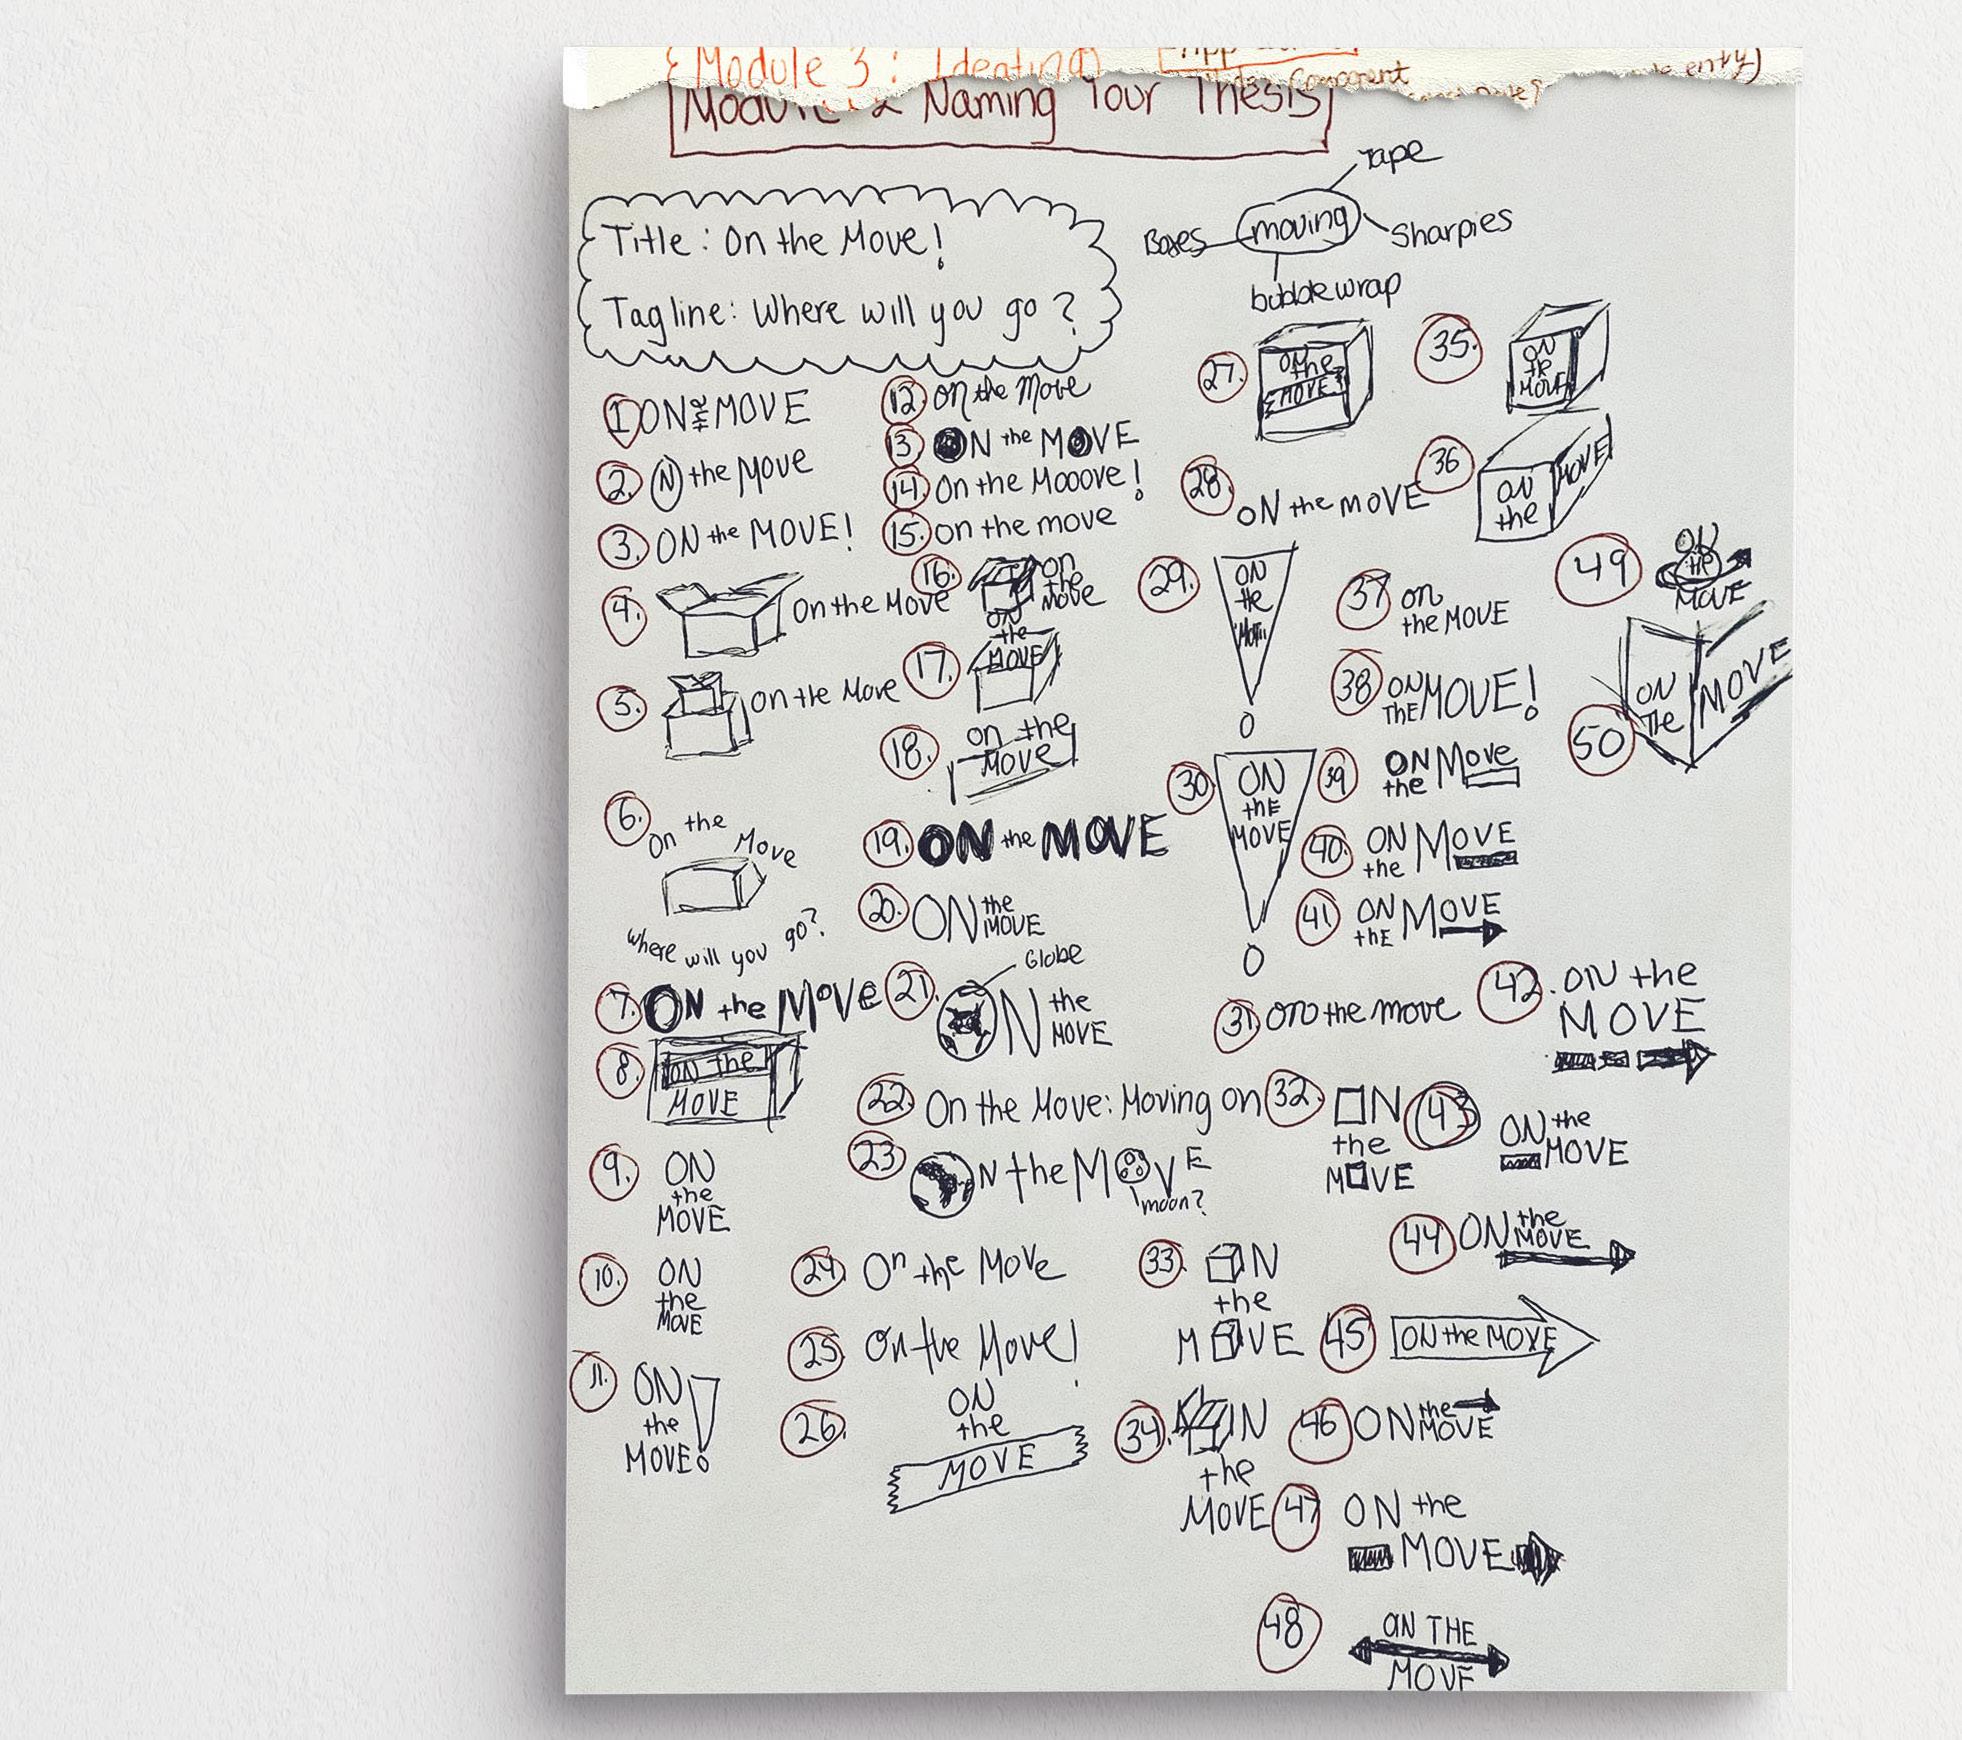 Module 3: Ideating
Component
entry)
Naming Your Thesis
Title: On the Move!
Tagline: Where will you go?
Tape
moving
Boxes
Sharpies
bubble wrap
1 ON the MOVE
2. N the Move
3. ON the MOVE!
4. On the Move
5. on the Move
6. on the Move
where will you go?
7. ON the MOVE
8. ON the
MOVE
9. ON
the
MOVE
10. ON
the
MOVE
11. ON
the
MOVE!
12. on the Move
13. ON the MOVE
14. On the Mooove!
15. on the move
16. on
the
move
17. ON
the
MOVE
18. on the
MOVE
19. ON the MOVE
20. ON the
MOVE
21. Globe
N the
MOVE
22. On the Move: Moving on
23. N the M VE
moon?
24. On the Move
25. On the Move!
26. ON
the
MOVE
27. ON the
MOVE
28. ON the MOVE
29. ON
the
30. ON
thE
MOVE
31. on the move
32. ON
the
MOVE
33. ON
the
MOVE
34. N
the
MOVE
35. ON
the
MOVE
36 ON
the
MOVE
37 on
the MOVE
38 ON
ThE MOVE!
39 ON
the Move
40. ON
the MOVE
41. ON
thE MOVE
42. ON the
MOVE
43 ON the
MOVE
44 ON the
MOVE
45 ON the MOVE
46 ON the
MOVE
47 ON the
MOVE
48 ON THE
MOVE
49 ON
the
MOVE
50 ON
The
MOVE